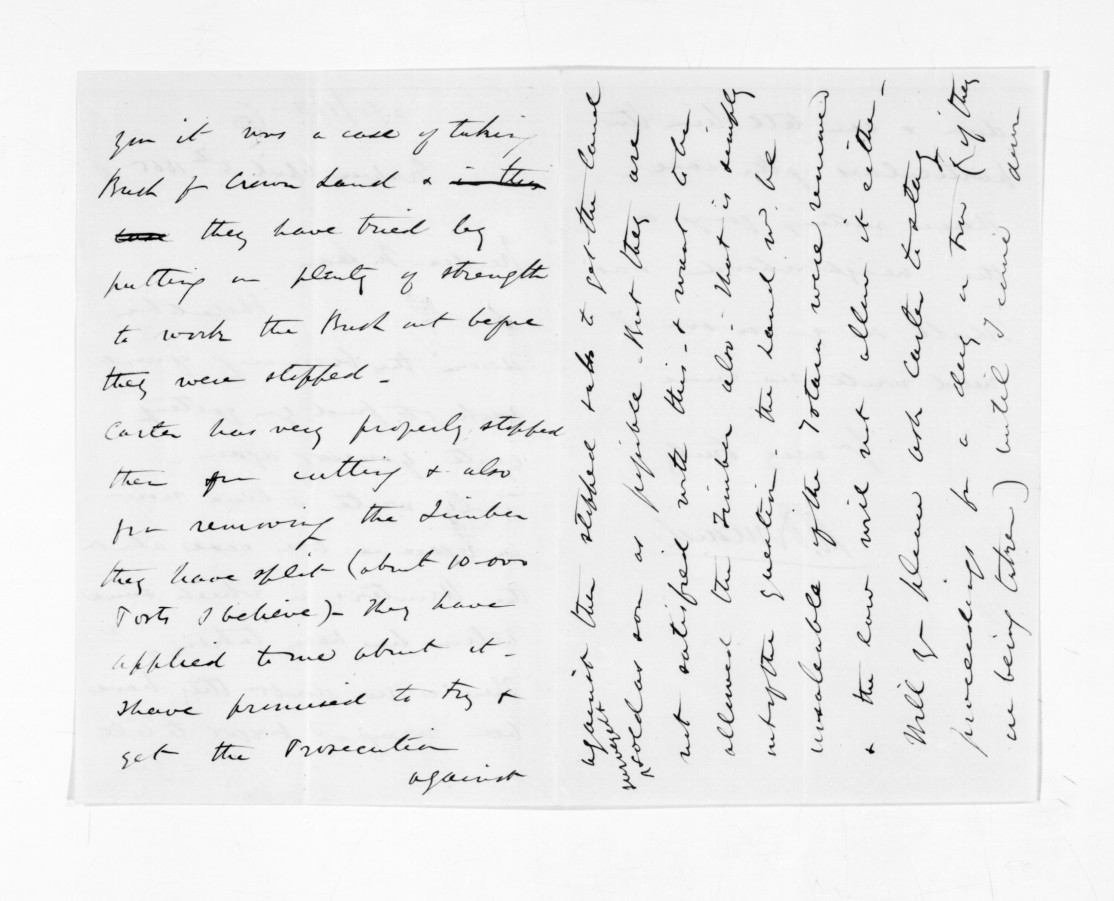 you it was a case of taking
Bush fr Crown Land & in this
case they have tried by
putting on plenty of strength
to work the Bush out before
they were stopped -
Carter has very properly stopped
them fm cutting & also
from removing the Timber
they have split (about 10.000
Posts I believe) - They have
applied to me about it -
I have promised to try &
get the Prosecution
against
against them stopped & also to get the land
surveyed
& sold as soon as possible - But they are
not satisfied with this - & want to be
allowed the Timber also - that is simply
out of the question - the land wd. be
unsaleable if the Totara were removed
& the law will not allow it either -
Will you please ask Carter to stay
proceedings for a day or two (if they
are being taken) until I come down